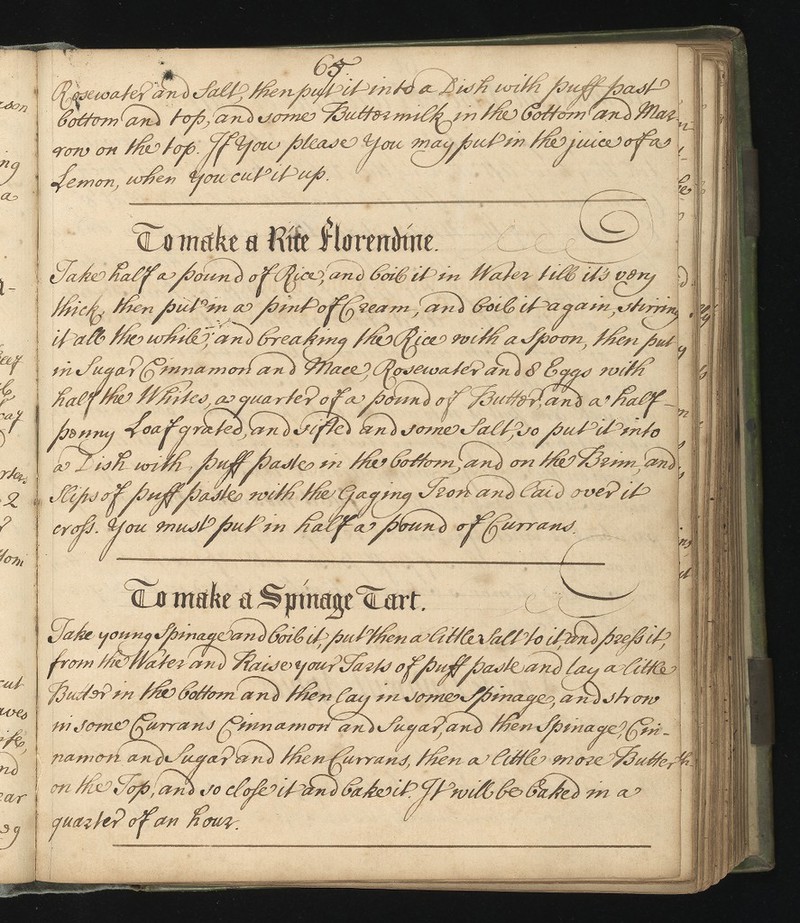 65.
Rosewater and Salt, then put it into a Dish with puff past
bottom and top, and some Buttermilk in the bottom and Mar-
row on the top. If You please You may put in the juice of a
Lemon, when You cut it up.
To make a Rice Florendine.
Take half a pound of Rice, and boil it in Water till it's very
thick, then put in a pint of Cream, and boil it again, stirring
it all the while, and breaking the Rice with a Spoon, then put
in Sugar Cinnamon and Mace, Rosewater and 8 Eggs with
half the Whites, a quarter of a pound of Butter, and a half-
penny Loaf grated, and sifted and some Salt, so put it into
a Dish with puff paste in the bottom, and on the Brim, and
slips of puff paste with the Gaging Iron and laid over it
cross. You must put in half a pound of Currans.
To make a Spinage Tart.
Take young Spinage and boil it, put then a little Salt to it, and press it,
from the Water and Raise your Tarts of puff paste and lay a little
Butter in the bottom and then lay in some Spinage, and strow
in some Currans Cinnamon and Sugar, and then Spinage, Cin-
namon and Sugar and then Currans, then a little more Butter
on the Top, and so close it and bake it. It will be baked in a
quarter of an hour.